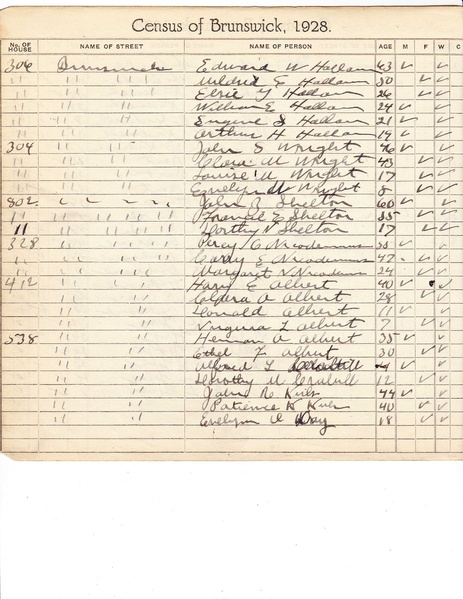 Census of Brunswick, 1928.
No. OF HOUSE NAME OF STREET NAME OF PERSON AGE M F W C
306 Brunswick Edward W Hallam 43 ✓ ✓
" " " Mildred E Hallam 30 ✓ ✓
" " " Elsie Y Hallam 26 ✓ ✓
" " " William E Hallam 24 ✓ ✓
" " " Eugene S Hallam 21 ✓ ✓
" " " Arthur H Hallam 19 ✓ ✓
304 " " John S Wright 46 ✓ ✓
" " " Clara M Wright 43 ✓ ✓
" " " Louise M Wright 17 ✓ ✓
" " " Evelyn W Wright 8 ✓ ✓
802 " " John B Shelton 60 ✓ ✓
" " " E Shelton 55 ✓ ✓
" " " Dorthy V Shelton 17 ✓ ✓
328 " " Percy C Nicodemus ✓ ✓
" " " Carry E Nicodemus 47 ✓ ✓
" " " Margaret V Nicodemus 24 ✓ ✓
412 " " Harry E Albert 40 ✓ ✓
" " Clara A Albert 28 ✓ ✓
" " Donald Albert 11 ✓ ✓
" " Virginia L Albert 7 ✓ ✓
538 " " Herman A Albert 35 ✓ ✓
" " Ethel F Albert 30 ✓ ✓
" " L ✓ ✓
" " Dorothy M 12 ✓ ✓
" " John R 44 ✓ ✓
" " Patience K 40 ✓ ✓
" " Evelynn V Day 18 ✓ ✓